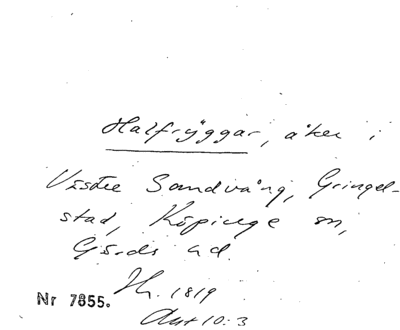 Halfryggar, åker i
Västre Sandvång, Gringel-
stad, Köpinge sn,
Gärds hd.
Nr 7855. Jh. 1819
Akt 10:3